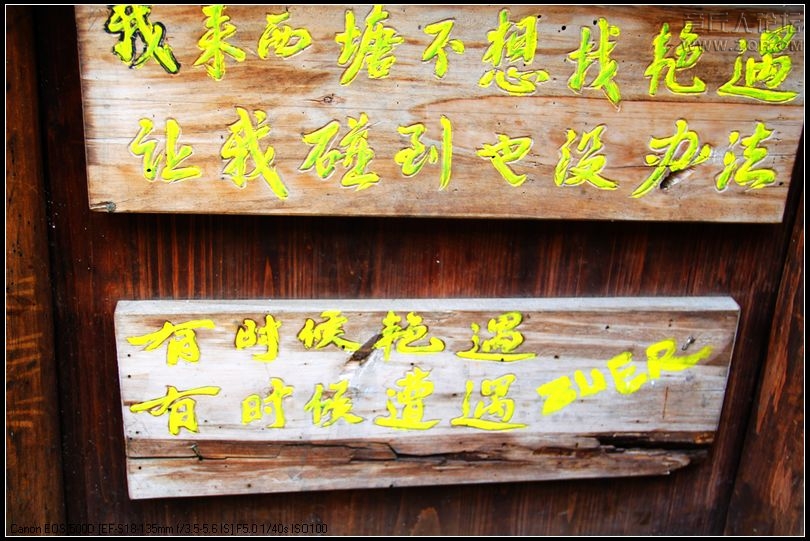 我来西塘不想找艳遇
让我碰到也没办法
有时候艳遇
有时候遭遇 BUER
Canon EOS 500D [EF-S18-135mm f/3.5-5.6 IS] F5.0 1/40s ISO100